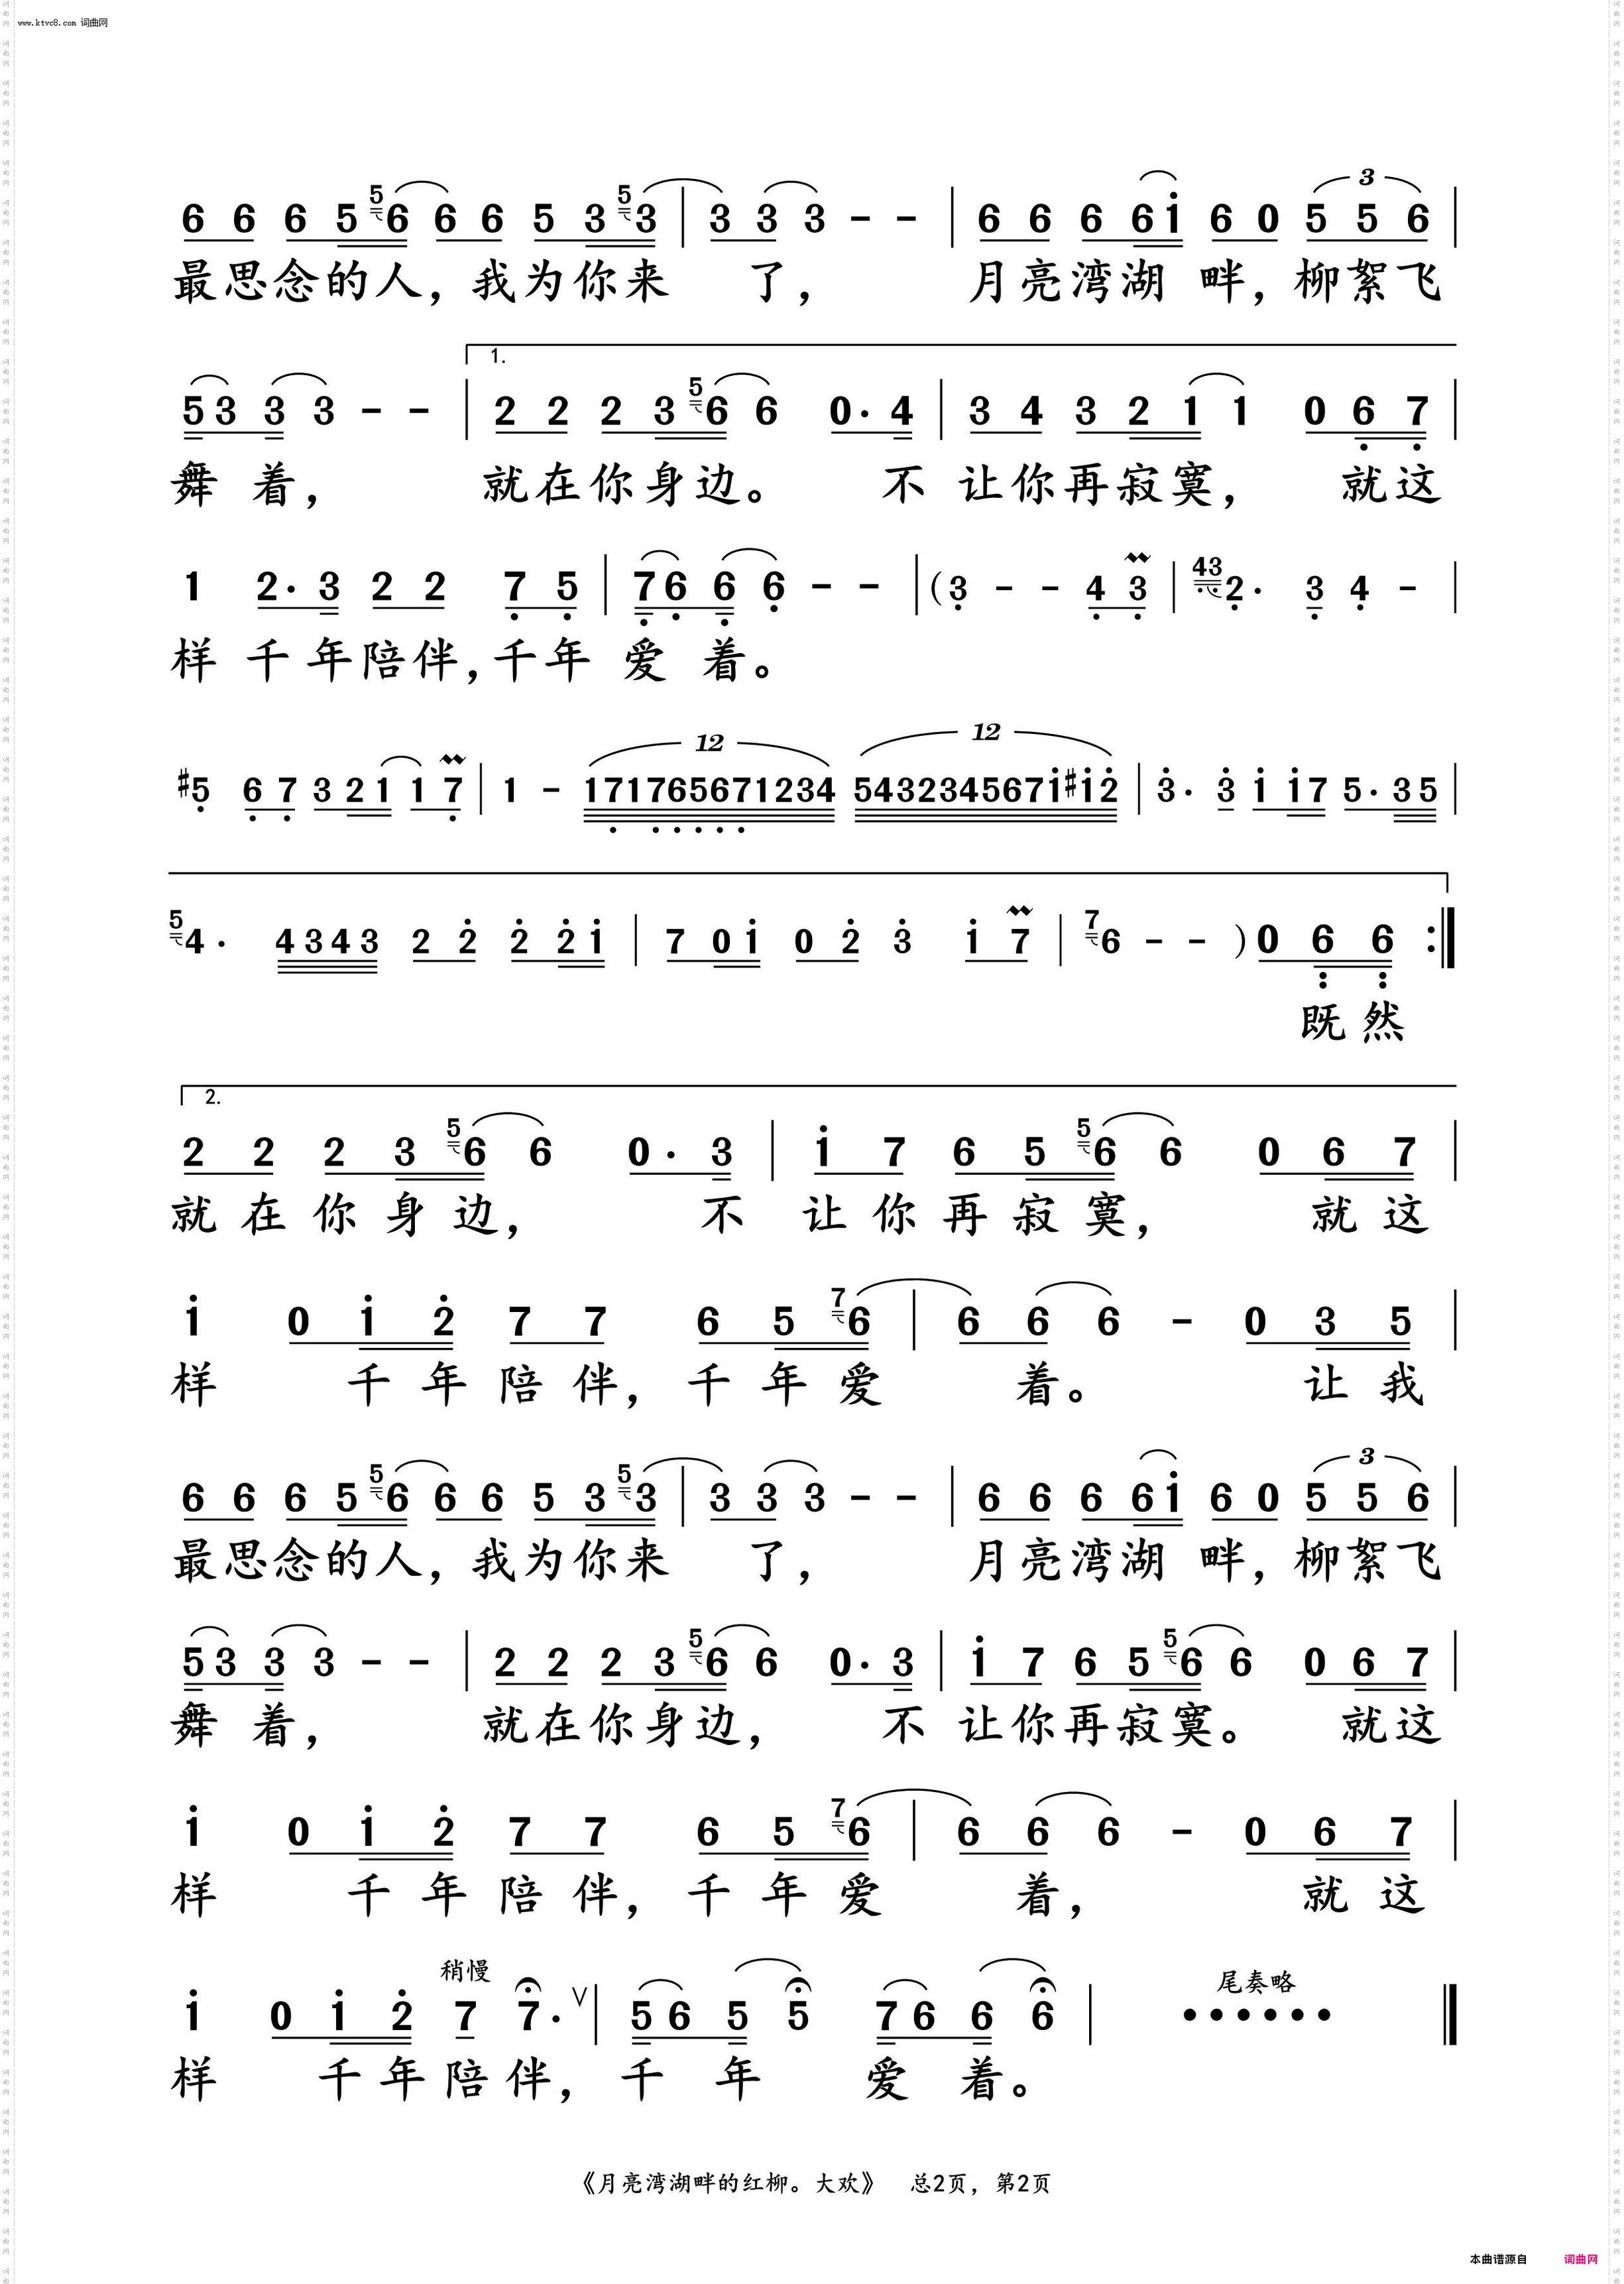 www.ktvc8.com 词曲网
6 6 6 5 5 6 6 6 5 3 5 3 | 3 3 3 - - | 6 6 6 6 i 6 0 5 5 6 | 3
最思念的人，我为你来 了， 月亮湾湖 畔，柳絮飞
1.
5 3 3 3 - - | 2 2 2 3 5 6 6 0· 4 | 3 4 3 2 1 1 0 6 7 |
舞 着， 就在你身边。 不 让你再寂寞， 就这
1 2· 3 2 2 7 5 | 7 6 6 6 - - | (3 - - 4 3 | 43 2· 3 4 - |
样 千年陪伴，千年 爱 着。
12 12
#5 6 7 3 2 1 1 7 | 1 - 1 7 1 7 6 5 6 7 1 2 3 4 5 4 3 2 3 4 5 6 7 i #i 2 | 3· 3 i i 7 5· 3 5 |
5 4· 4 3 4 3 2 2 2 2 i | 7 0 i 0 2 3 i 7 | 7 6 - - ) 0 6 6 :|
既然
2.
2 2 2 3 5 6 6 0· 3 | i 7 6 5 5 6 6 0 6 7 |
就在你身边， 不 让你再寂寞， 就这
i 0 i 2 7 7 6 5 7 6 | 6 6 6 - 0 3 5 |
样 千年陪伴，千年爱 着。 让我
3
6 6 6 5 5 6 6 6 5 3 5 3 | 3 3 3 - - | 6 6 6 6 i 6 0 5 5 6 |
最思念的人，我为你来 了， 月亮湾湖 畔，柳絮飞
5 3 3 3 - - | 2 2 2 3 5 6 6 0· 3 | i 7 6 5 5 6 6 0 6 7 |
舞 着， 就在你身边， 不 让你再寂寞。 就这
i 0 i 2 7 7 6 5 7 6 | 6 6 6 - 0 6 7 |
样 千年陪伴，千年爱 着， 就这
稍慢 尾奏略
i 0 i 2 7 7· V | 5 6 5 5 7 6 6 6 | • • • • • • ||
样 千年陪伴，千 年 爱 着。
《月亮湾湖畔的红柳。大欢》 总2页，第2页
本曲谱源自 词曲网